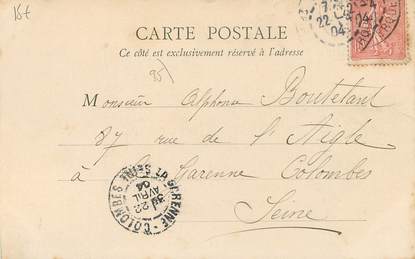 15f
CARTE POSTALE
Ce côté est exclusivement réservé à l'adresse
95)
Monsieur Alphonse Boutetant
87 rue de l'Aigle
à La Garenne Colombes
Seine
22
04
LA GARENNE-COLOMBES SEINE
22
AVRIL
04